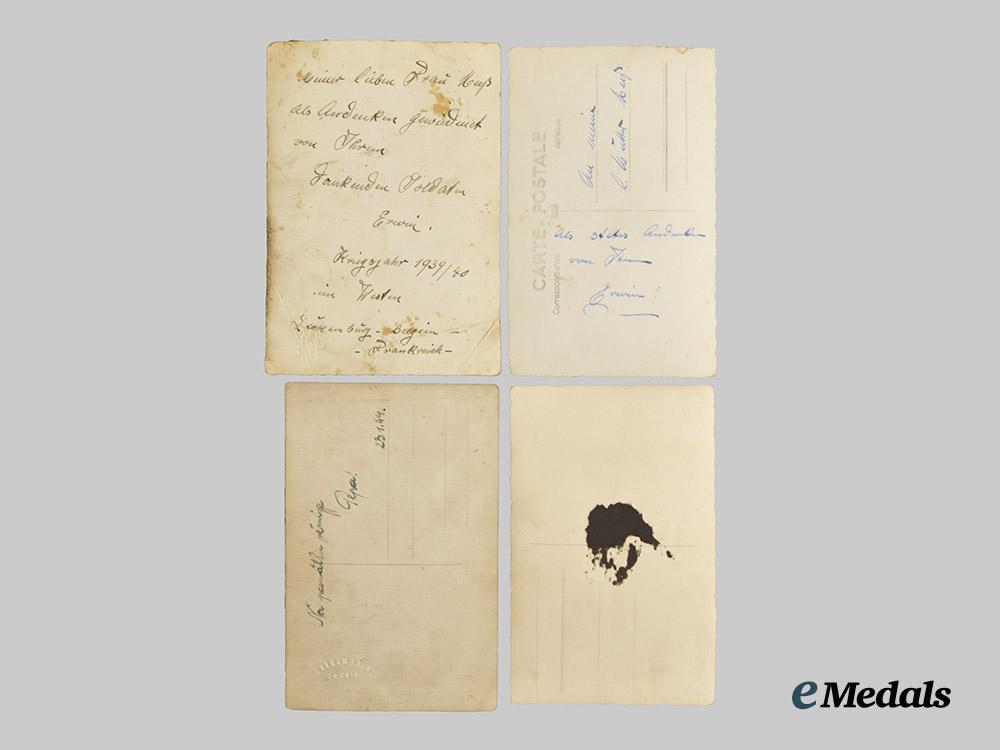 Meiner lieben Frau
als Andenken gewidmet
von Ihrem
dankenden Soldaten
Erwin.
Kriegsjahr 1939/40
im Westen
Luxemburg - Belgien -
- Frankreich -
CARTE POSTALE
Correspondance
Adresse
An meine
l. Mutter
Als stetes Andenken
von Ihrem
Erwin!
23.1.44.
Na památku
Pepa!
eMedals